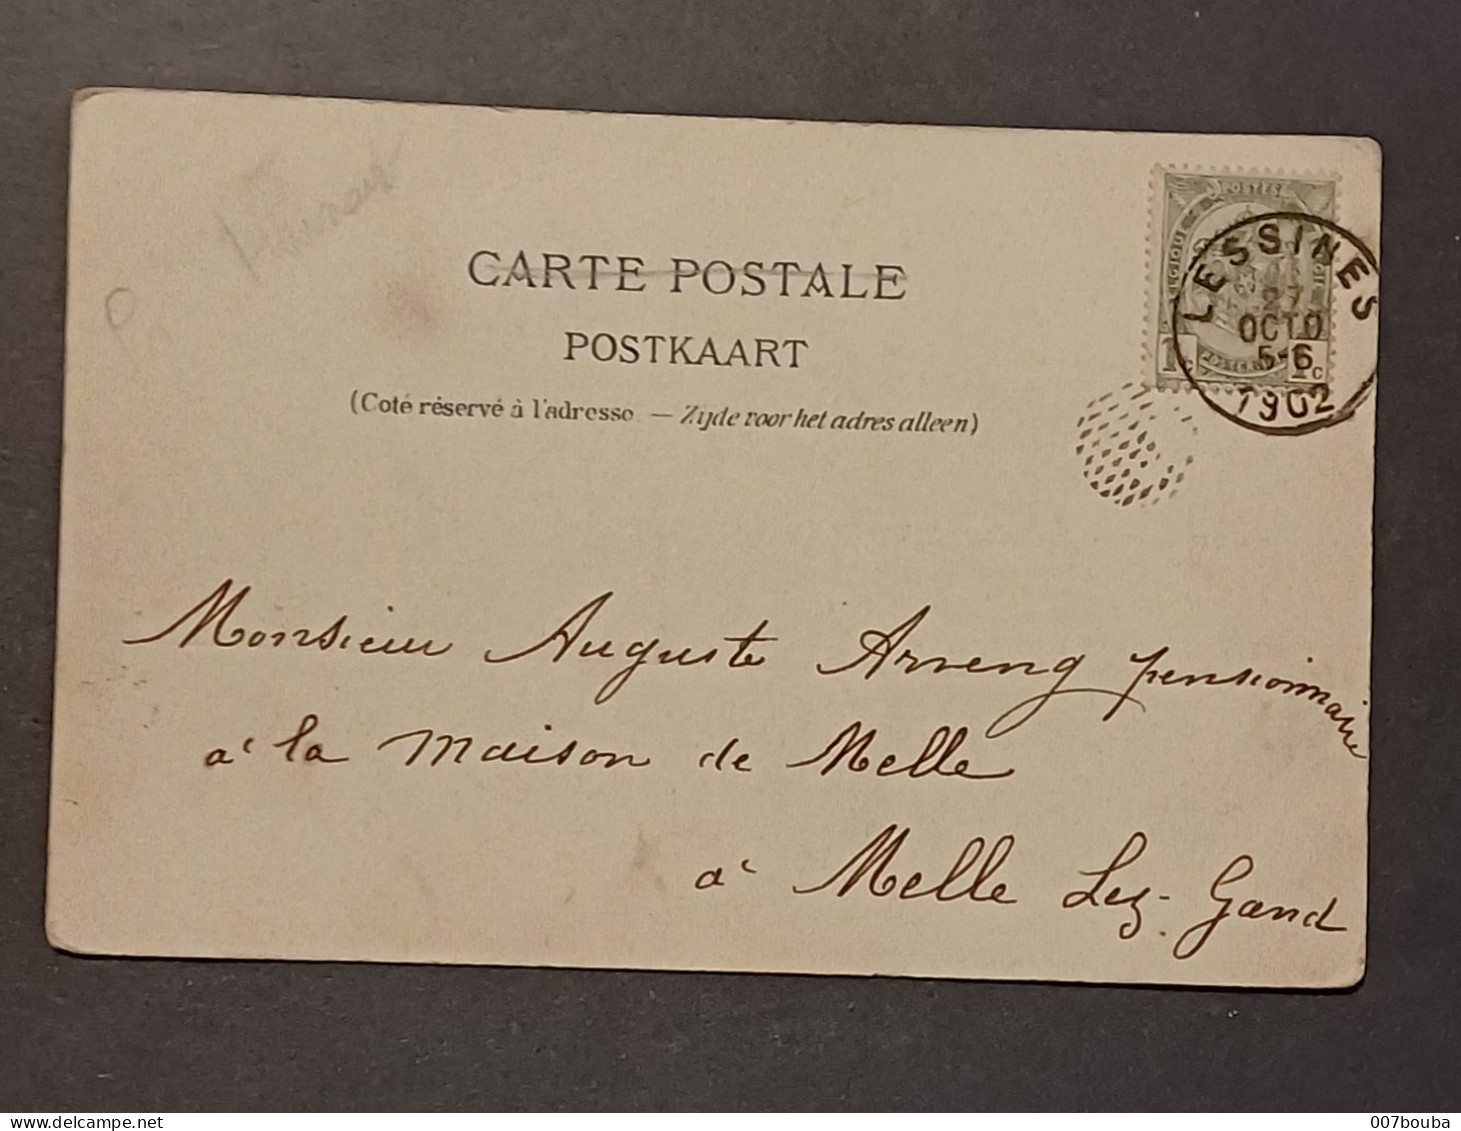 CARTE POSTALE
POSTKAART
(Coté réservé à l'adresse — Zijde voor het adres alleen)
POSTES
LESSINES
27
OCTO
5-6
1902
1c 1c
Monsieur Auguste Arreng pensionnaire
à la maison de Melle
à Melle Lez-Gand
delcampe.net
007bouba